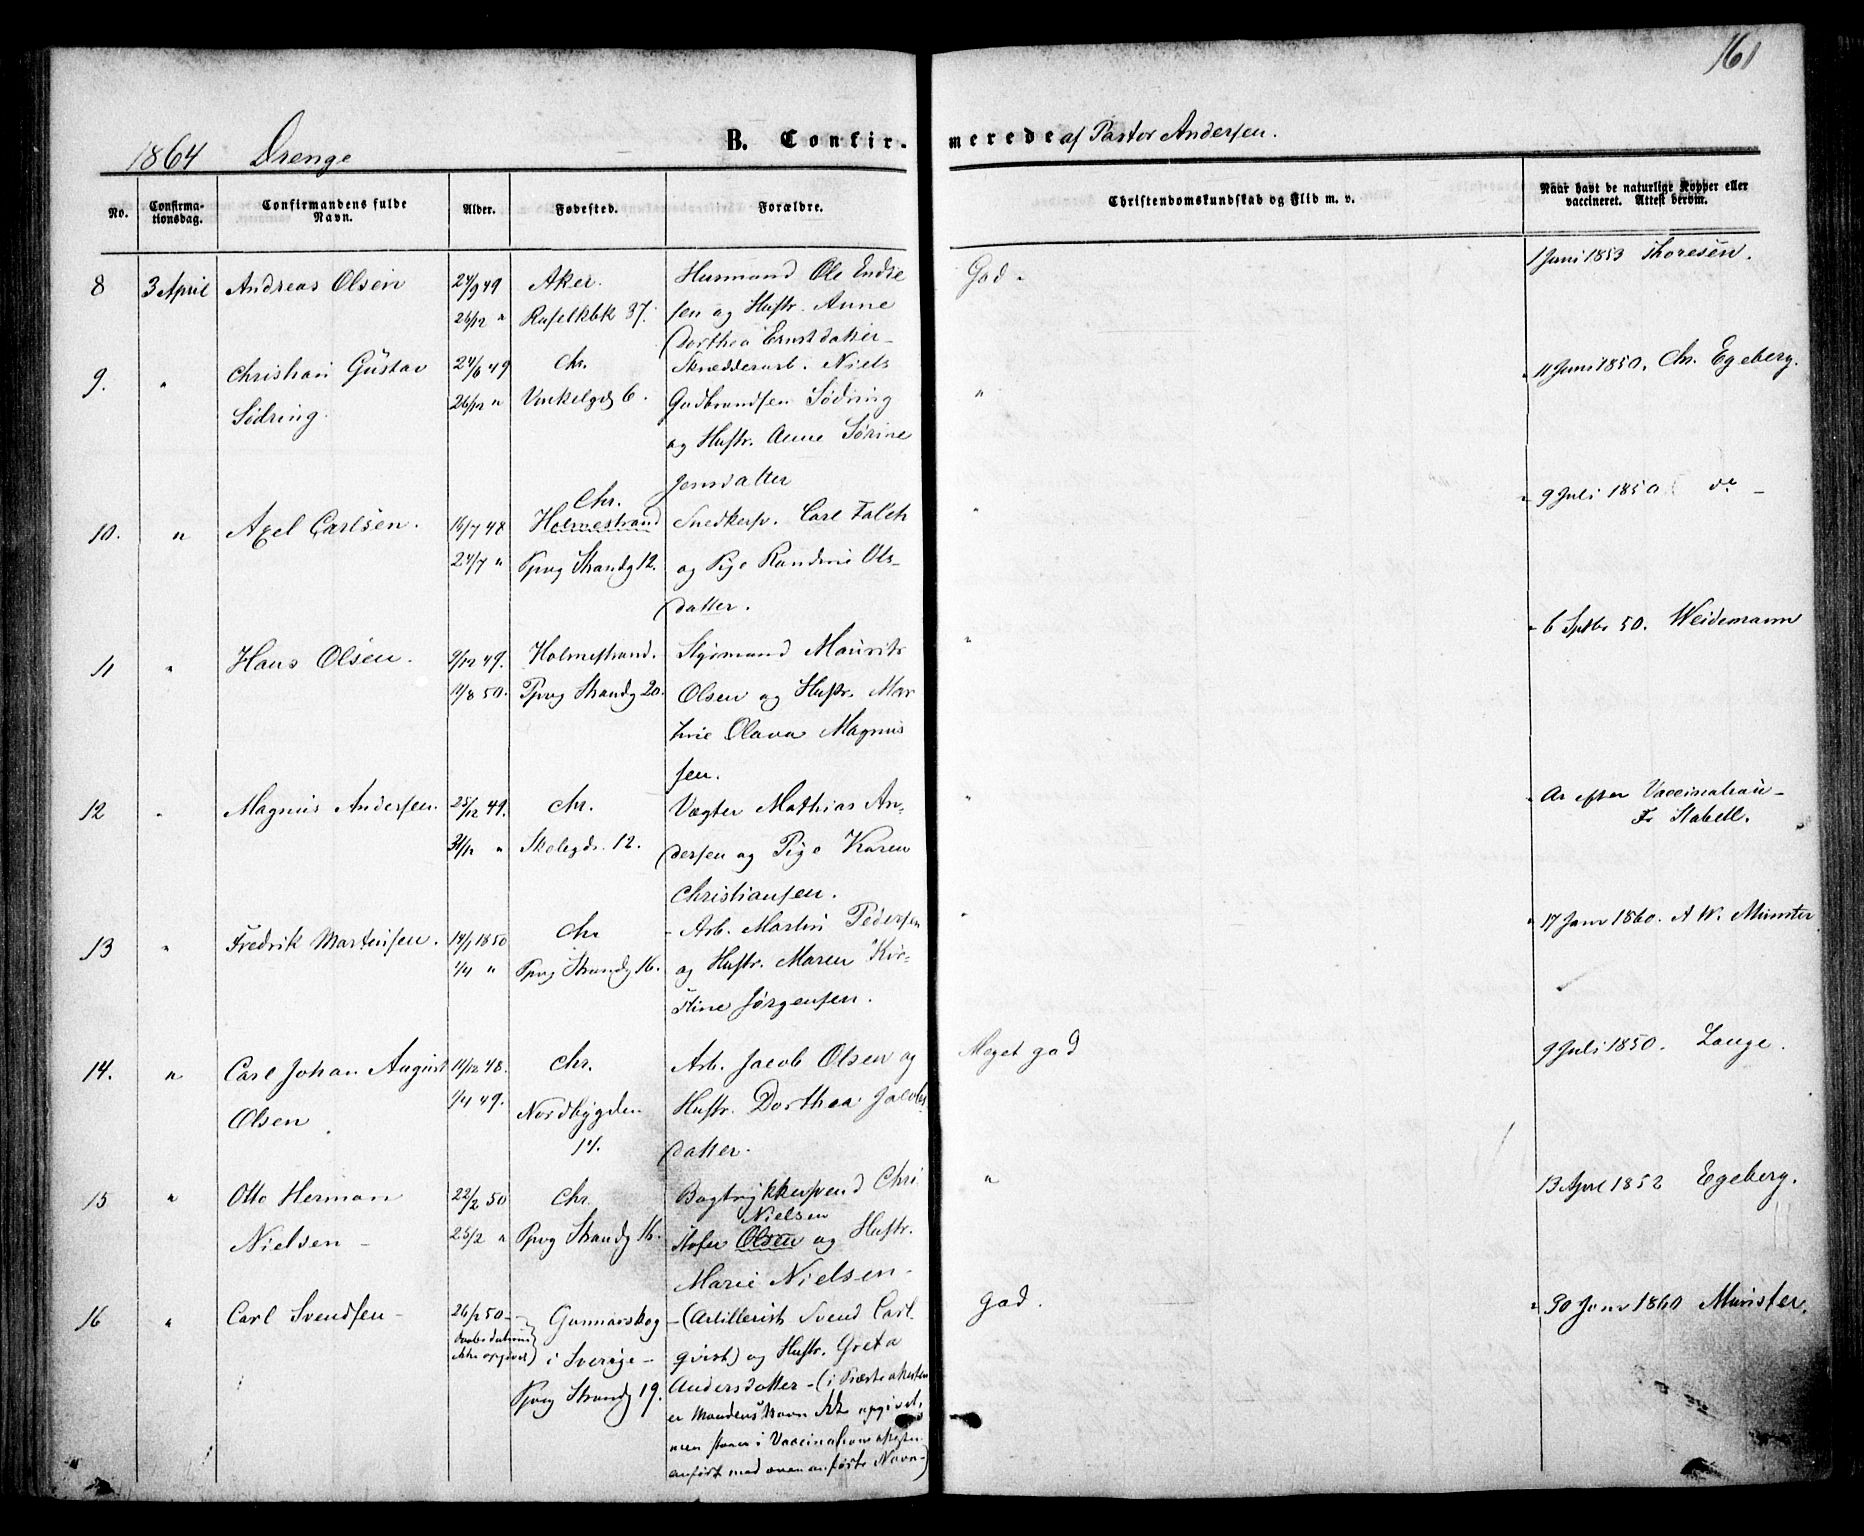 161
1864 Drenge B. Confirmerede af Pastor Andersen.
No. Confirmationsdag. Confirmandens fulde Navn. Alder. Fødested. Forældre. Christendomskundskab og Flid m. v. Naar havt de naturlige Kopper eller vaccineret. Attest derom.
8 3 April Andreas Olsen 24/9 49 Aker. Husmand Ole Endre God - 1 Juni 1853 Thoresen.
26/12 " 37. sen og Hustr. Anne
Dorthea Ernstdatter -
9. " Christian Gustav 24/6 49 Chr. Skrædderarb. Niels " 11 Juni 1850. Chr. Egeberg.
Södring. 26/12 " Vinkelgd 6. Gudbrandsen Södring
og Hustr. Anne Sörine
Jensdatter
10. " Axel Carlsen. 16/7 48 Chr. Holmestrand Snedkersv. Carl Falch " 9 Juli 1850 do -
24/7 " Pprvg Strandg 12. og Pige Randine Ols-
datter.
11 " Hans Olsen. 9/12 49. Holmestrand. Styrmand Maurits " 6 Septbr 50. Weidemann
11/8 50. Pprvg Strandg 20. Olsen og Hustr. Mar
thie Olava Magnus
sen.
12 " Magnus Andersen. 25/12 49. Chr. Vægter Mathias An- " Ar efter Vaccination -
31/12 " Skolegd. 12. dersen og Pige Karen Fr Stabell.
Christiansen.
13 " Fredrik Martinsen. 14/1 1850 Chr - Arb. Martin Pedersen " 17 Janr 1860. A W. Münster
1/4 " Pprvg Strandg 16. og Hustr. Maren Kir-
stine Jørgensen.
14. " Carl Johan August 11/12 48. Chr. Arb. Jacob Olsen og Meget god 9 Juli 1850. Lange.
Olsen 1/4 49. Nordbygden Hustr. Dorthea Jacobs-
14. datter.
15 " Otto Herman 22/2 50 Chr. Bogtrykkersvend Chri " 13 Apr 1852 Egeberg.
Nielsen - 25/2 " Pprvg Strandg 16. stofer Olsen Nielsen og Hustr.
Marie Nielsen -
16 " Carl Svendsen - 26/2 50 - Gunnarskog - (Artillerist Svend Carl God. " 30 Janr 1860 Münster.
Daabsdatum ikke opgivet) i Sverige - qvist) og Hustr. Greta
Pprvg Strandg 19. Andersdatter - (i Præsteattesten
er Mandens Navn ikke opgivet,
men staaer i Vaccinationsattesten
anført med ovenanførte Navn -)